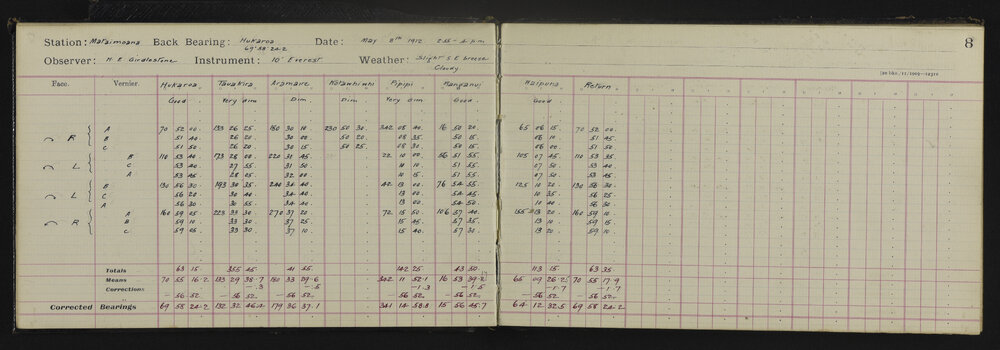 8
Station: Mataimoana Back Bearing: Hukaroa Date: May 8th 1912 2.55 - 4 pm
69° 58' 24.2
Observer: H E Girdlestone Instrument: 10" Everest Weather: Slight S E breeze
Cloudy
Face. Vernier. Hukaroa Tawakira Aramaire Pipipi Ranganui Waipuna Return
Good Very dim Dim. Dim Very dim Good Good
R A 70 52 00 133 26 25 180 30 10 230 50 30 342 08 40 16 50 20 65 06 15 70 52 00
B 51 40 26 20 30 00 50 20 08 35 50 15 06 10 51 45
C 51 50 26 20 30 15 50 25 08 30 50 15 06 00 51 50
L B 110 53 40 173 28 00 220 31 45 22 10 00 56 51 55 105 07 45 110 53 35
C 53 40 27 55 31 50 10 10 51 55 07 50 53 40
A 53 45 28 05 32 00 10 15 51 55 07 50 53 45
L B 130 56 30 193 30 35 240 34 40 42 13 00 76 54 55 125 10 20 130 56 30
C 56 20 30 40 34 40 13 00 54 45 10 35 56 25
A 56 30 30 55 34 40 13 00 54 50 10 40 56 30
R A 160 59 25 223 33 30 270 37 20 72 15 50 106 57 40 155 13 20 160 59 10
B 59 10 33 30 37 25 15 45 57 35 13 10 59 15
C 59 05 33 30 37 10 15 40 57 30 13 20 59 10
Totals 63 15 355 45 41 55 142 25 43 50 113 15 63 35
Means 70 55 16.2 133 29 38.7 180 33 29.6 342 11 52.1 16 53 39.2 65 09 26.2 70 55 17.9
Corrections - .3 - .5 - 1.3 - 1.5 - 1.7 - 1.7
- 56 52 - 56 52 - 56 52 - 56 52 - 56 52 - 56 52 - 56 52
Corrected Bearings 69 58 24.2 132 32 46.4 179 36 37.1 341 14 58.8 15 56 45.7 64 12 32.5 69 58 24.2